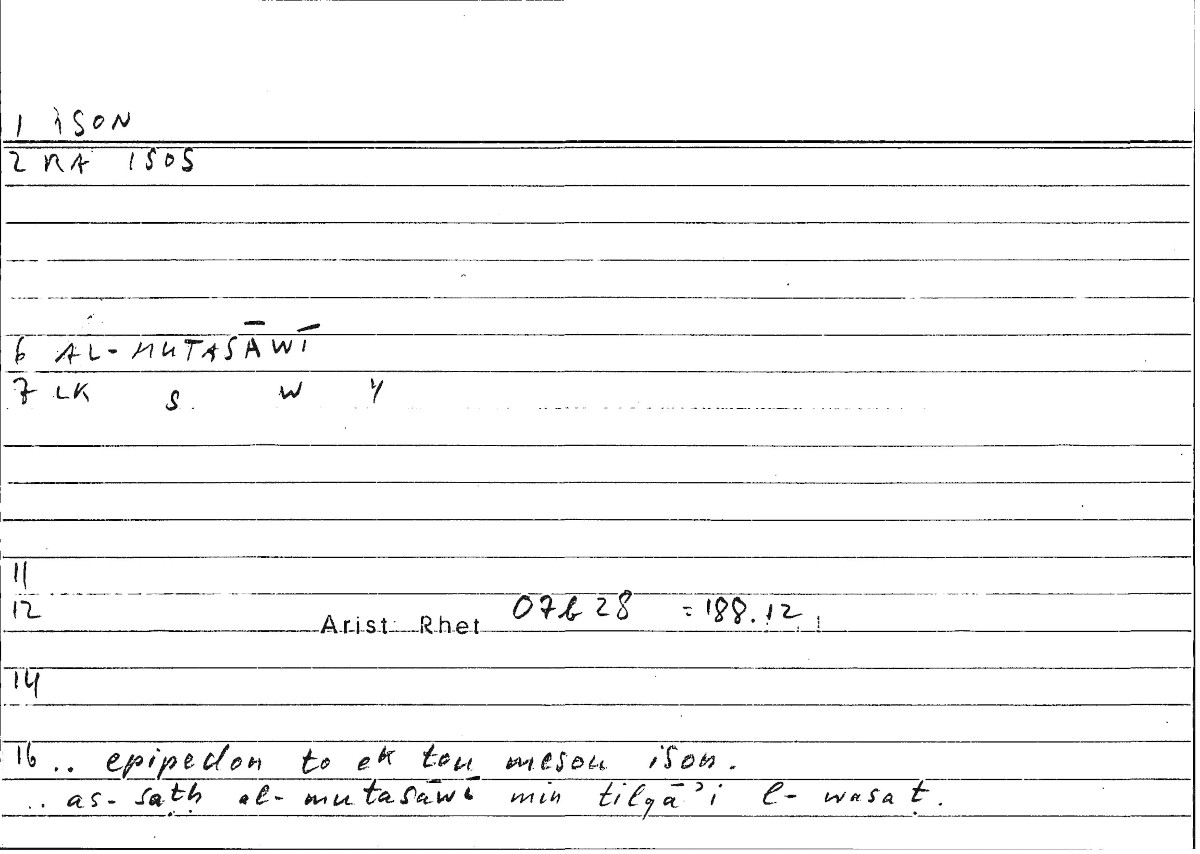 1 ISON
2 RA ISOS
6 AL-MUTASĀWĪ
7 LK S W Y
11
12 Arist Rhet 07b28 =188.12
14
16 .. epipedon to ek tou mesou ison.
.. as-saṭḥ al-mutasāwī min tilqāʾi l-wasaṭ.